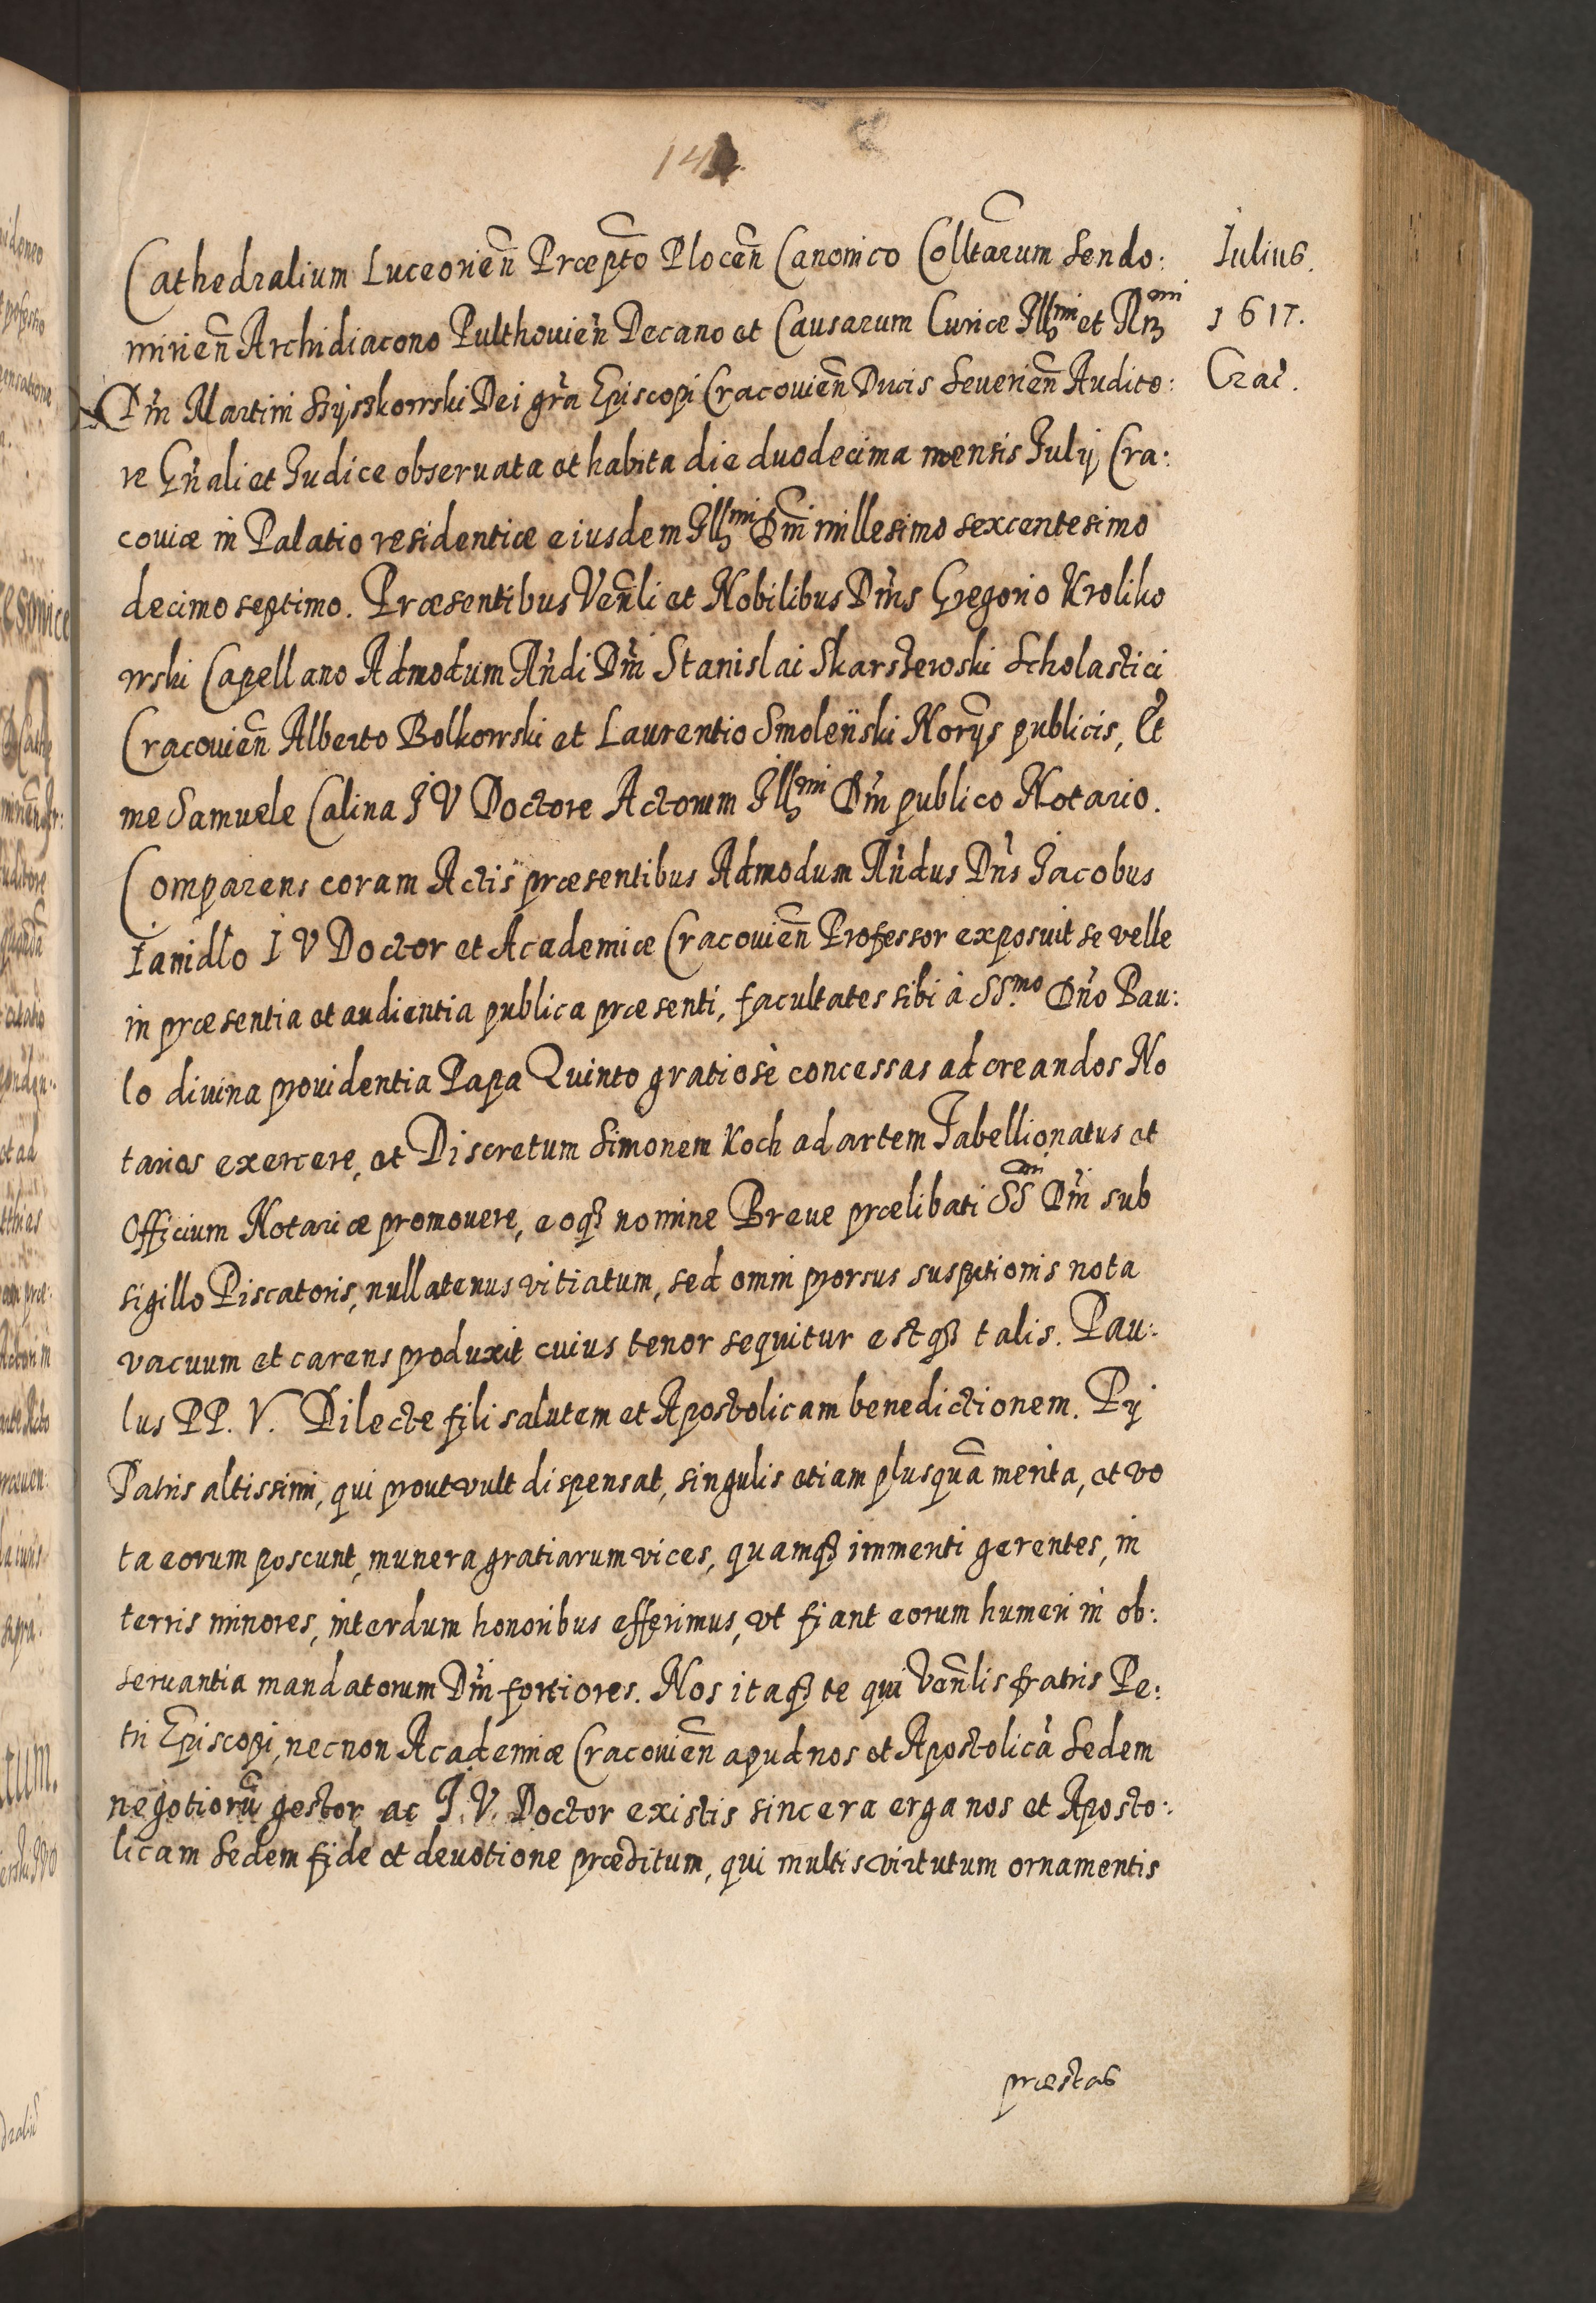 Cathedralium Luceorień Præpto Ploceń Canonico Colltarum Sendo:
mirień Archidiacono Pulthouień Decano et Causarum Curiæ Illmi et Rmi
Dni Martini Szyszkowski Dei gra Episcopi Cracouień Ducis Seuerień Audito:
re Gnali et Iudice obseruata et habita die duodecima mensis Iulij Cra:
couiæ in Palatio residentiæ eiusdem Illmi Dni millesimo sexcentesimo
decimo septimo. Præsentibus Venli et Nobilibus Dnis Gregorio Kroliko
wski Capellano Admodum Rndi Dni Stanislai Skarszewski Scholastici
Cracouień Alberto Bolkowski et Laurentio Smoleński Norijs publicis, Et
me Samuele Calina I V Doctore Actorum Illmi Dni publico Notario.
Comparens coram Actis præsentibus Admodum Rndus Dns Iacobus
Ianidlo I V Doctor et Academiæ Cracouień Professor exposuit se velle
in præsentia et audientia publica præsenti, facultates sibi à SSmo Dno Pau:
lo diuina prouidentia Papa Quinto gratiosè concessas ad creandos No
tarios exercere, et Discretum Simonem Koch ad artem Tabellionatus et
Officium Notariæ promouere, eoqз nomine Breue prælibati SSmi Dni sub
sigillo Piscatoris, nullatenus vitiatum, sed omni prorsus suspitionis nota
vacuum et carens produxit cuius tenor sequitur estqз talis. Pau:
lus PP. V. Dilecte fili salutem et Apostolicam benedictionem. Pij
Patris altissimi, qui prout vult dispensat, singulis etiam plusquā merita, et vo
ta eorum poscunt, munera gratiarum vices, quamqз immeriti gerentes, in
terris minores, interdum honoribus efferimus, vt fiant eorum humeri in ob:
seruantia mandatorum Dni fortiores. Nos itaqз te qui Venlis fratris Pe:
tri Episcopi, necnon Academiæ Cracouień apud nos et Apostolicā Sedem
negotiorū gestor ac I. V. Doctor existis sincera erga nos et Aposto:
licam Sedem fide et deuotione præditum, qui multis virtutum ornamentis
præstas
Iulius.
1617.
Crac.